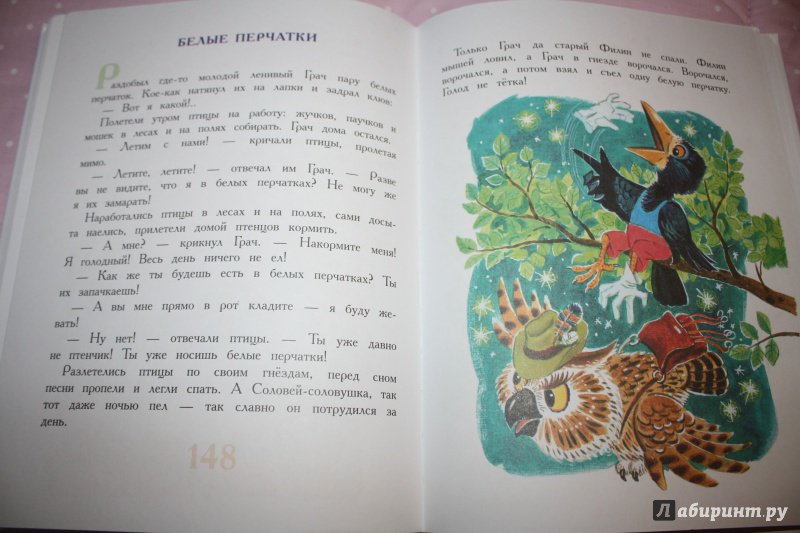 БЕЛЫЕ ПЕРЧАТКИ
Раздобыл где-то молодой ленивый Грач пару белых
перчаток. Кое-как натянул их на лапки и задрал клюв:
— Вот я какой!..
Полетели утром птицы на работу: жучков, паучков и
мошек в лесах и на полях собирать. Грач дома остался.
— Летим с нами! — кричали птицы, пролетая
мимо.
— Летите, летите! — отвечал им Грач. — Разве
вы не видите, что я в белых перчатках? Не могу же
я их замарать!
Наработались птицы в лесах и на полях, сами досы-
та наелись, прилетели домой птенцов кормить.
— А мне? — крикнул Грач. — Накормите меня!
Я голодный! Весь день ничего не ел!
— Как же ты будешь есть в белых перчатках? Ты
их запачкаешь!
— А вы мне прямо в рот кладите — я буду же-
вать!
— Ну нет! — отвечали птицы. — Ты уже давно
не птенчик! Ты уже носишь белые перчатки!
Разлетелись птицы по своим гнёздам, перед сном
песни пропели и легли спать. А Соловей-соловушка, так
тот даже ночью пел — так славно он потрудился за
день.
148
Только Грач да старый Филин не спали. Филин
мышей ловил, а Грач в гнезде ворочался. Ворочался,
ворочался, а потом взял и съел одну белую перчатку.
Голод не тётка!
Лабиринт.ру